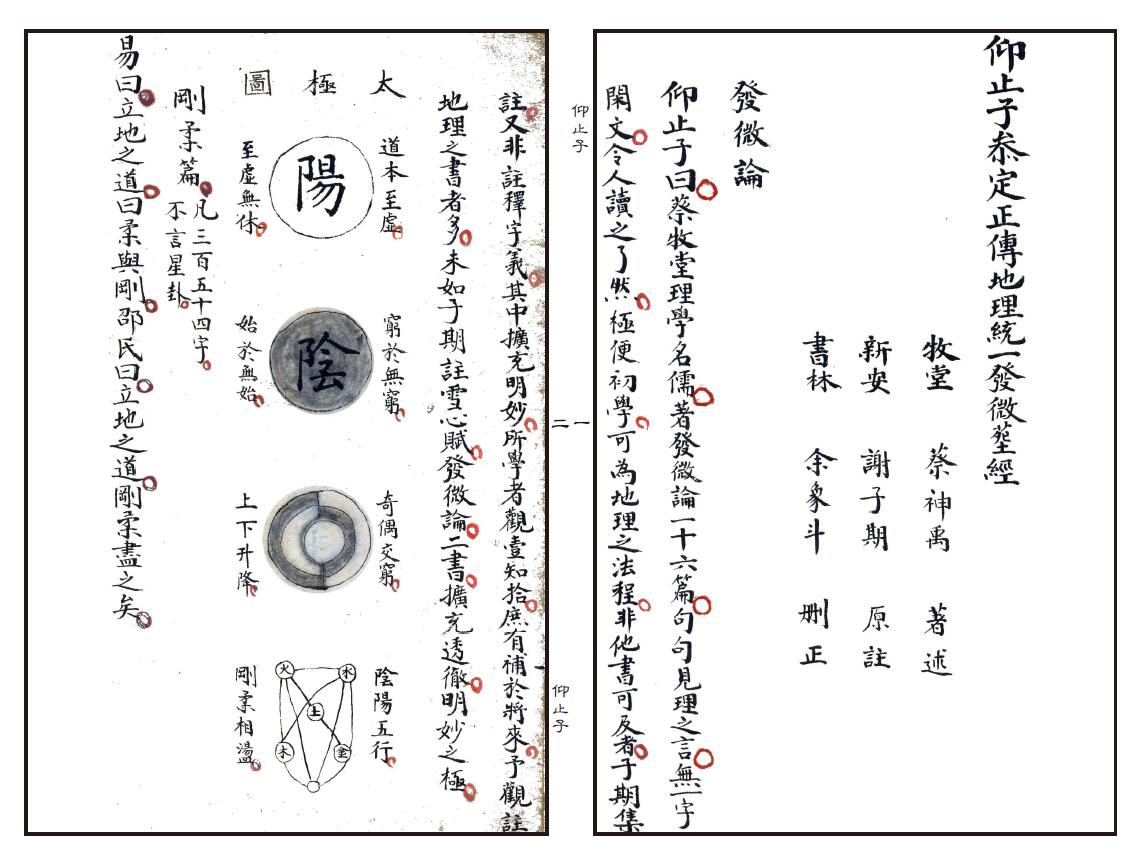 仰止子叅定正傳地理統一發微堃經
牧堂　蔡神禹　著述
新安　謝子期　原註
書林　余象斗　刪正
發微論
仰止子曰蔡牧堂理學名儒著發微論一十六篇句句見理之言無一字
閑文令人讀之了然極便初學可為地理之法程非他書可及者子期集
仰止子
一
二
仰止子
註又非註釋字義其中擴充明妙所學者觀壹知拾庶有補於將來予觀註
地理之書者多未如子期註雪心賦發微論二書擴充透徹明妙之極
太極圖
道本至虛
陽
至虛無休
窮於無窮
陰
始於無始
奇偶交窮
上下升降
陰陽五行
火 水
土
木 金
剛柔相盪
剛柔篇
凡三百五十四字
不言星卦
易曰立地之道曰柔與剛邵氏曰立地之道剛柔盡之矣